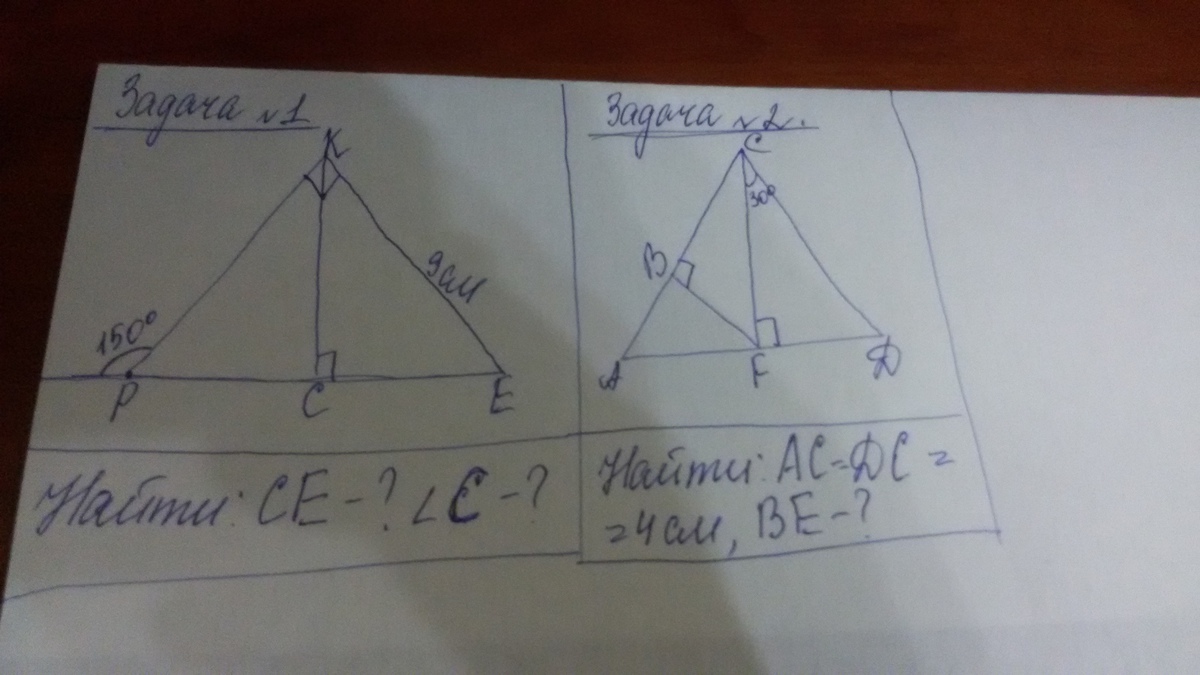 Задача №1
K
9см
150°
P
C
E
Найти: CE-? ∠C-?
Задача №2.
C
30°
B
A
F
D
Найти: AC=DC=
=4см, BE-?